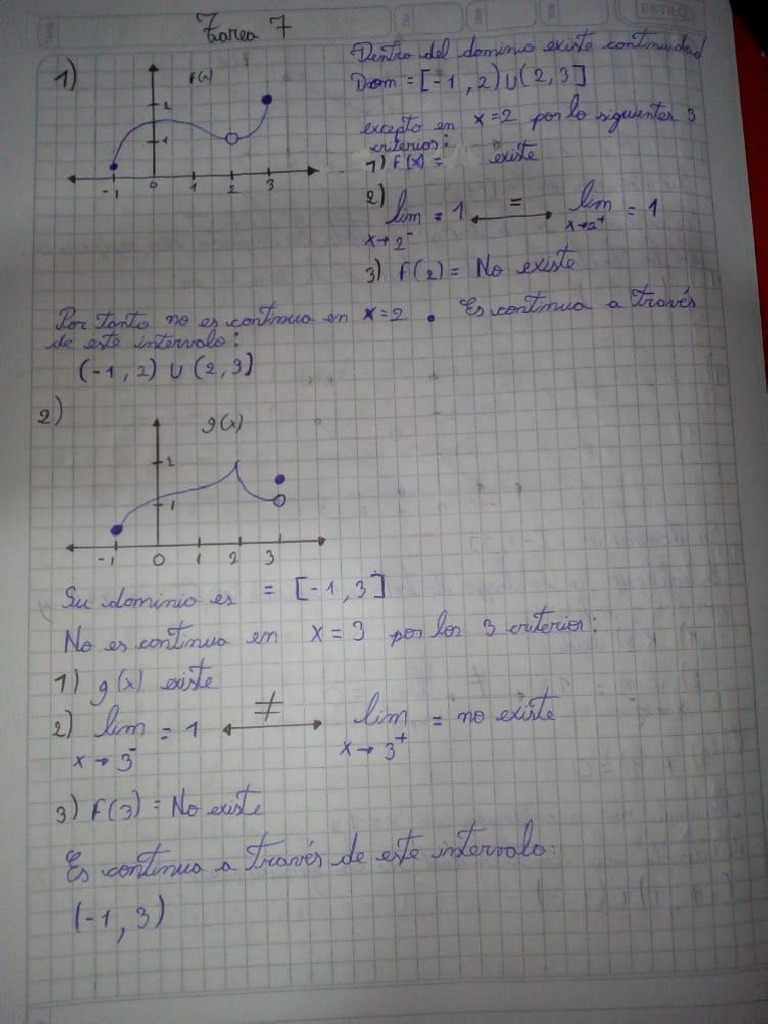 ESTILO
Tarea 7
1)
f(x)
2
1
-1 0 1 2 3
Dentro del dominio existe continuidad
Dom = [-1, 2) ∪ (2, 3]
excepto en x=2 por lo siguientes 3
criterios:
1) f(x) = existe
2) lim = 1 ⟷ = lim = 1
x→2⁻ x→2⁺
3) f(2) = No existe
Por tanto no es continua en x=2 . Es continua a través
de este intervalo:
(-1, 2) ∪ (2, 3)
2)
g(x)
2
1
-1 0 1 2 3
Su dominio es = [-1, 3]
No es continua en x = 3 por los 3 criterios:
1) g(x) existe
2) lim = 1 ⟷ ≠ lim = no existe
x→3⁻ x→3⁺
3) f(3) = No existe
Es continua a través de este intervalo:
(-1, 3)